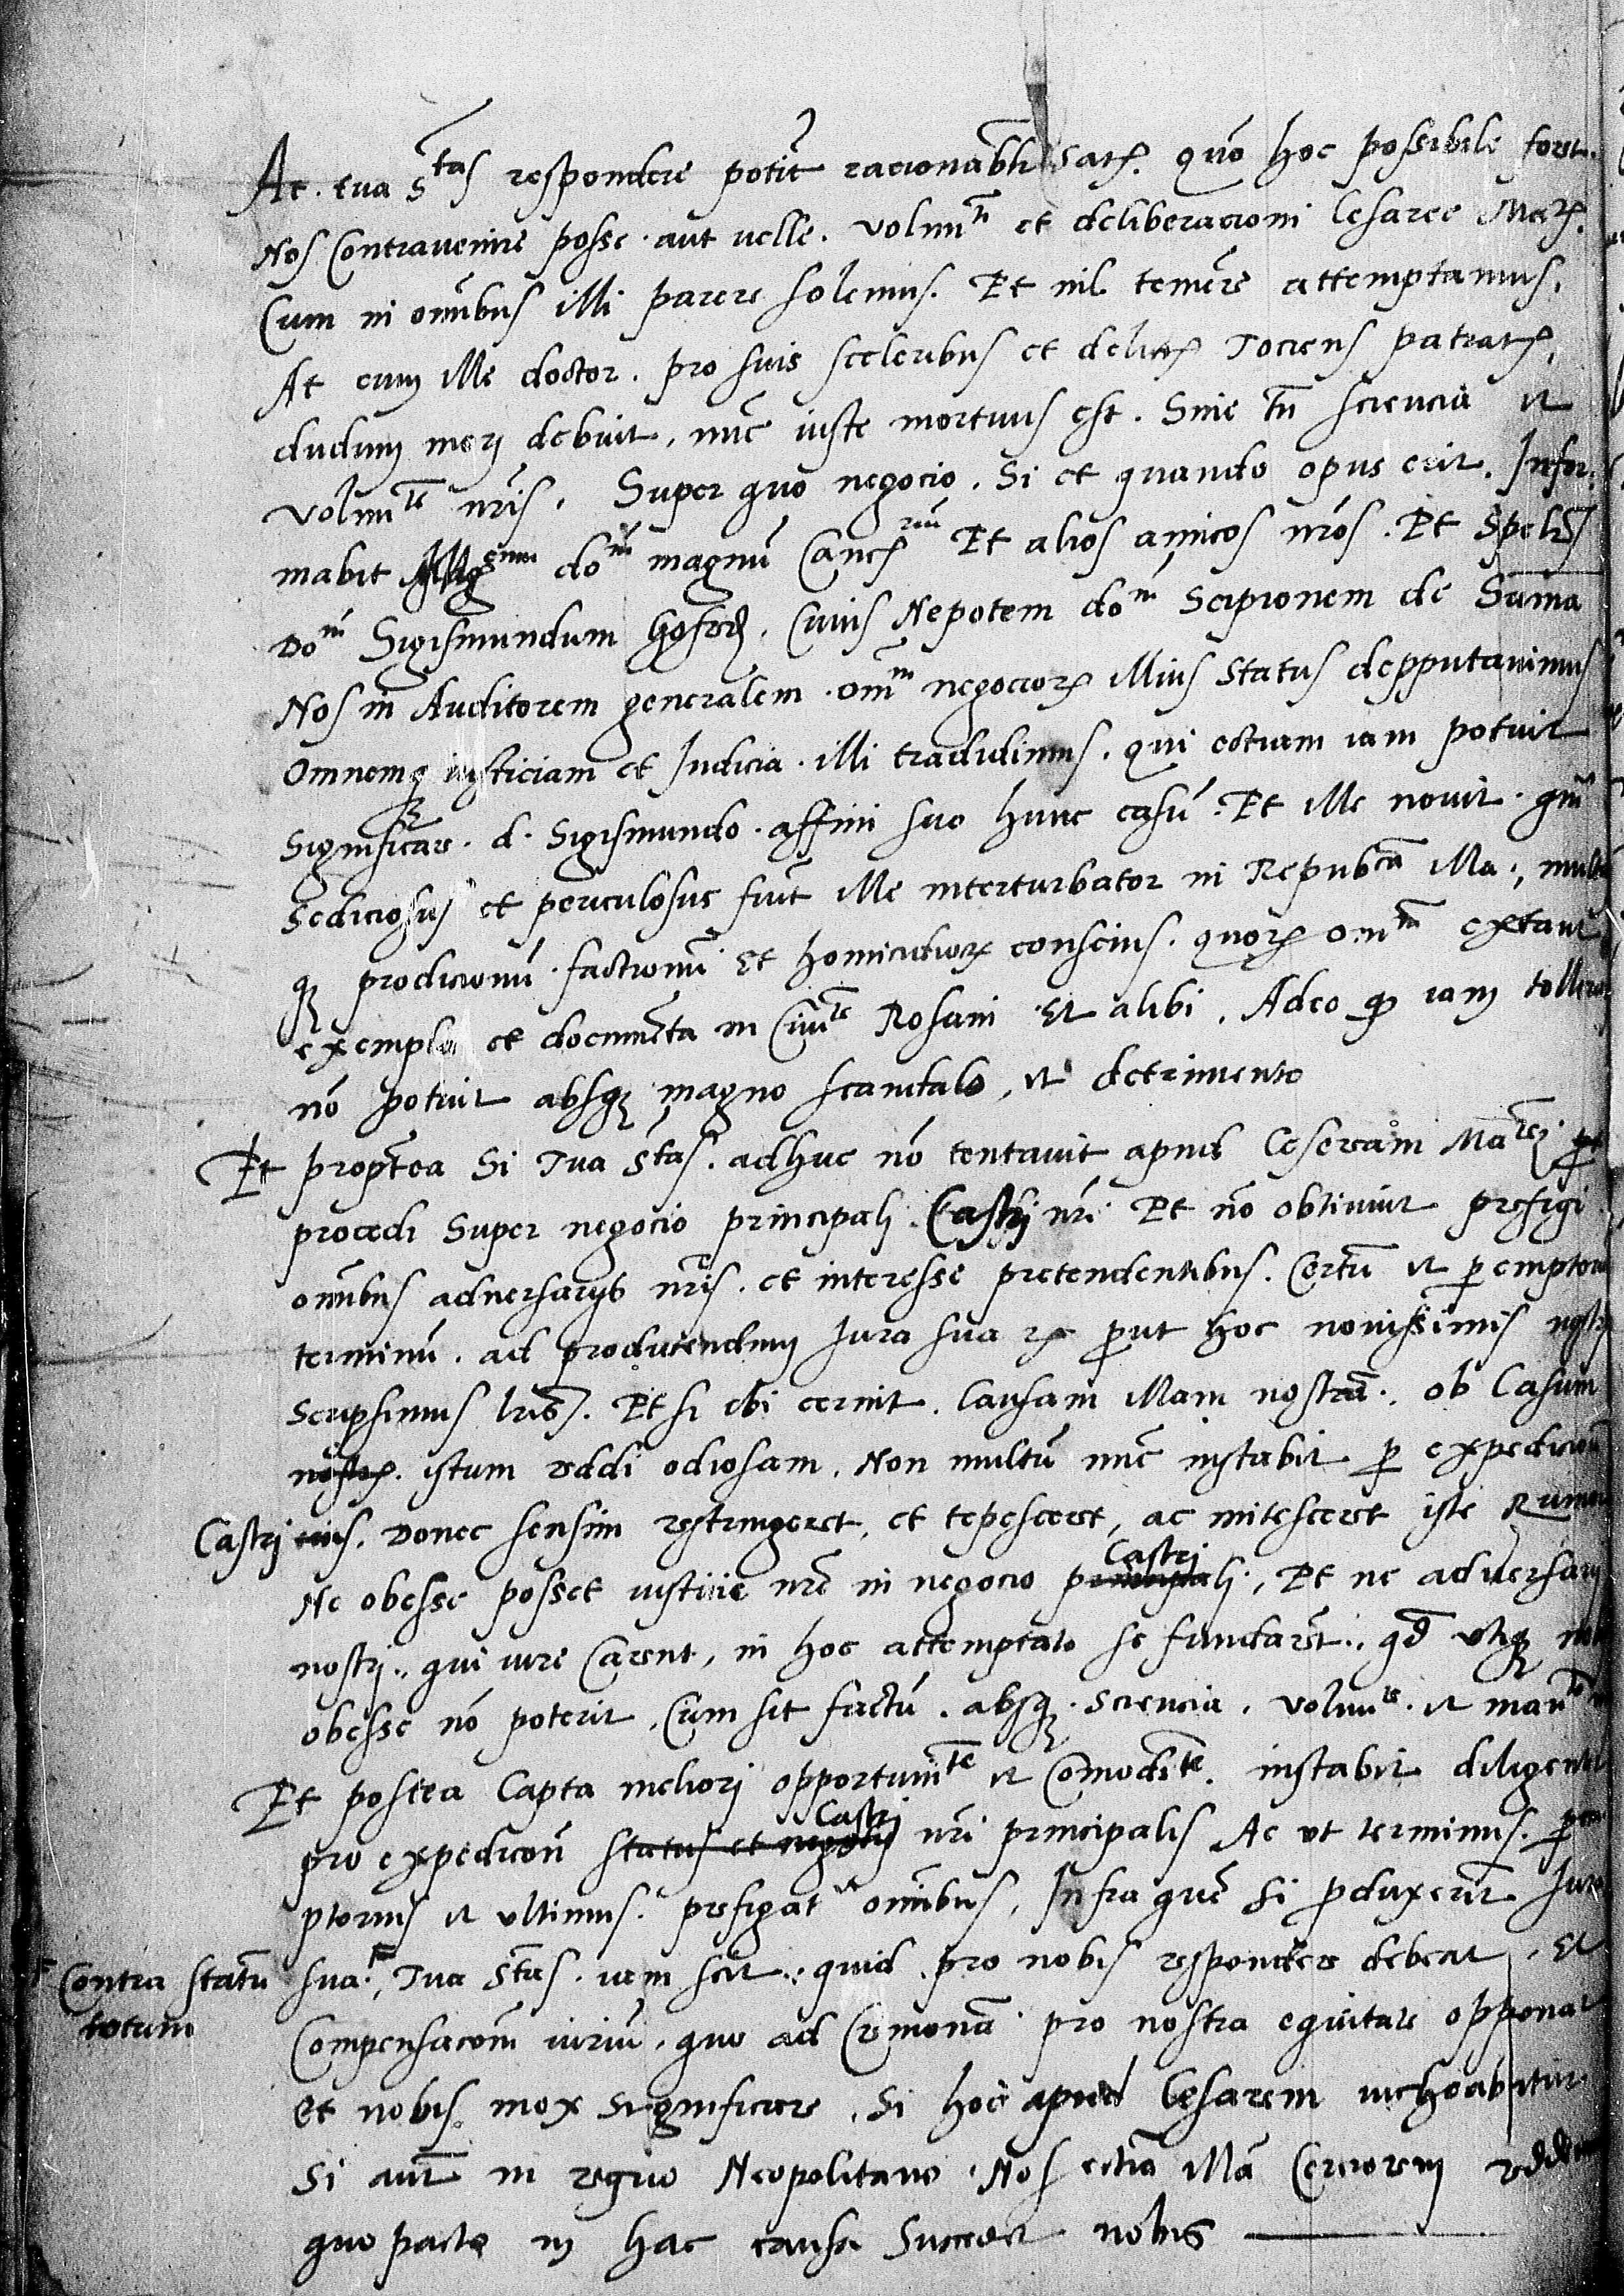 Ac. tua S.tas respondere potu͞it racionab͞lr satꝭ quo͞ hoc possibile foret.
Nos Contravenire posse. aut velle. volun͞ti et deliberacioni Cesaree Matꝭ.
Cum in om͞nibus illi parere solemus. Et nil temere attemptamus.
At cum ille doctor. pro suis sceleribus et delictꝭ Tociens patratꝭ,
dudum morj debuit, nu͞c iuste mortuus est. Sine tn͞ sciencia et
volun͞te nr͞is. Super quo negocio. Si et quando opus erit. Infor:
mabit do͞m magnu͞ Canc͞rium Et alios amicos nr͞os. Et
Do͞m Sigismundum. Cuius Nepotem do͞m Scipionem de Summa
Nos in Auditorem generalem. om͞m negociorꝭ illius Status depputavimus
Omnemqꝫ iusticiam et Judicia. illi tradidimus. qui ectiam iam potuit
Significare. d. Sigismundo. affini suo hunc casu͞. Et ille novit.
sediciosus et periculosus fuit ille interturbator in Repub͞ca illa.,
qꝫ prodicionu͞. factionu͞. Et homicidiorꝭ conscius. quorꝭ om͞m extant
exempla et docume͞nta in Civi͞te Rosani Et alibi. Adeo iam
no͞ potuit absqꝫ magno scandalo, et detrimento
Et propt͞ea Si Tua S͞tas. adhuc no͞ tentavit apud Cesaream Ma͞tem
procedi Super negocio principalj. Castrj nr͞i Et no͞ obtinuit prefigi
om͞nibus adversarijs nr͞is. et interesse pretendentibus. Certu͞ et peremptoriu
terminu͞. ad producendum Jura sua ꝛc prout hoc novissimis nostris
Scripsimus lr͞is. Et si ibi cernit. Causam illam nostra͞. ob Casum
istum reddi odiosam. Non multu͞ nu͞c instabit p expedicione
Castrj. Donec sensim restringeret, et tepesceret, ac mitesceret iste Rumor
Ne obesse posset iusticie nr͞e in negocio Castrj principalj, Et ne adversarij
nostrj., qui iure Carent, in hoc attemptato se fundare͞t., qd͞ utiqꝫ nobis
obesse no͞ poterit, Cum sit factu͞. absqꝫ. sciencia, volun͞te. et man͞to
Et postea Capta meliorj opportuni͞te et Com͞odi͞te. instabit diligenter
pro expedicion͞ status et negotij Castrj nr͞i principalis Ac ut terminus. perem
ptorius et ultimus. prefigat͞ur om͞nibus, Infra que͞ si produxerint Jura
sua., Tua S͞tas. iam scit., quid pro nobis respondere debeat. Et
Contra statu͞
totum
Compensacom͞ iuriu͞. quo ad Cremona͞ pro nostra equitate opponat
Et nobis mox significare, Si hoc apud Cesarem inchoabitur
Si aut͞ in regno Neopolitano. Nos ectia͞ illa͞ Cerciorem reddemus
quo pacto in hac causa Succedet nobis